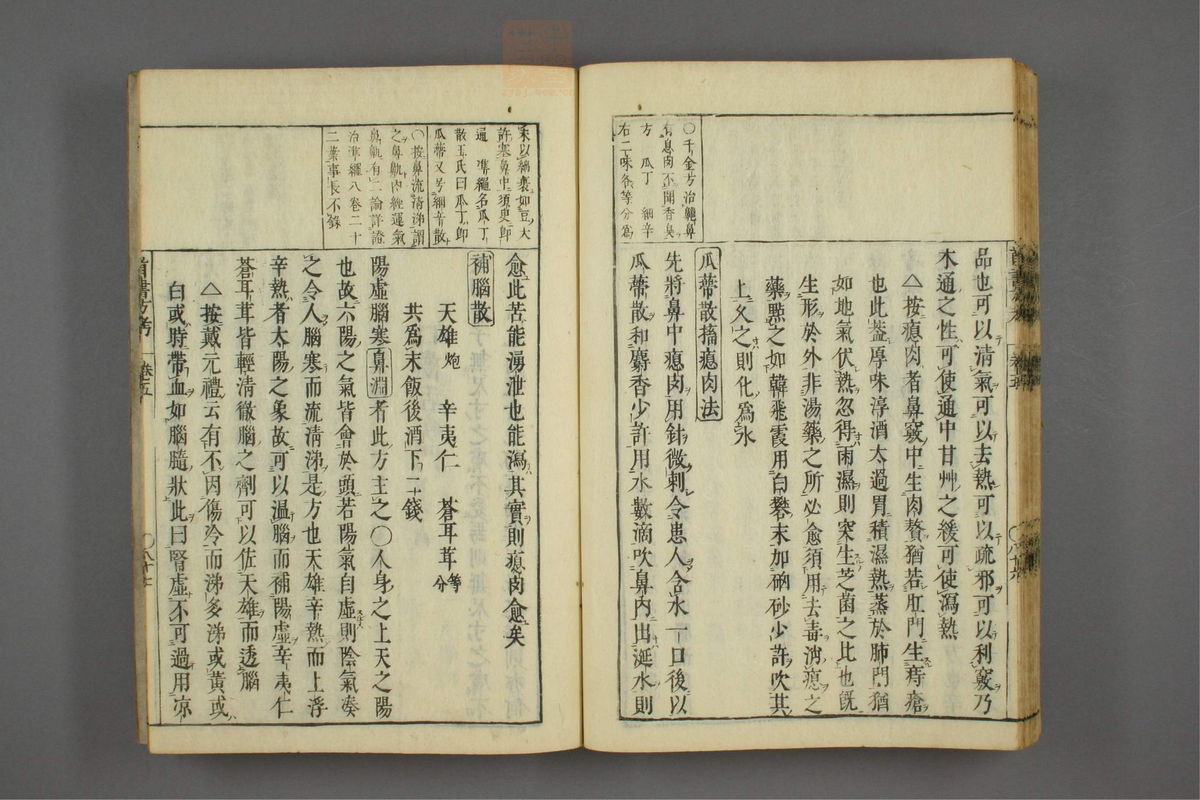 〇千金方治齆鼻
有息肉不聞香臭
方 瓜丁 細辛
右二味各等分爲
品也可以清氣可以去熱可以疏邪可以利竅乃
木通之性可使通中甘艸之緩可使瀉熱
△按瘜肉者鼻竅中生肉贅猶若肛門生痔瘡
也此盖厚味淳酒太過胃積濕熱蒸於肺門猶
如地氣伏熱忽得雨濕則突生芝菌之比也旣
生形於外非湯藥之所必愈須用去毒消瘜之
藥點之如韓飛霞用白礬末加硇砂少許吹其
上久之則化爲水
瓜蒂散搐瘜肉法
先將鼻中瘜肉用針微刺令患人含水一口後以
瓜蒂散和麝香少許用水數滴吹鼻内出涎水則
卷五
末以綿裹如豆大
許塞鼻中須臾即
通 準繩名瓜丁
散王氏曰瓜丁即
瓜蒂又号細辛散
〇按鼻流清涕謂
之鼻鼽内經運氣
鼻鼽有二論詳證
治準繩八卷二十
二葉事長不錄
愈此苦能湧泄也能瀉其實則瘜肉愈矣
補腦散
天雄炮 辛夷仁 蒼耳茸等分
共爲末飯後酒下二錢
陽虛腦塞鼻淵者此方主之〇人身之上天之陽
也故六陽之氣皆會於頭若陽氣自虛則陰氣凑
之令人腦寒而流清涕是方也天雄辛熱而上浮
辛熱者太陽之象故可以溫腦而補陽虛辛夷仁
蒼耳茸皆輕清徹腦之劑可以佐天雄而透腦
△按戴元禮云有不因傷冷而涕多涕或黃或
白或時帶血如腦髓狀此曰腎虛不可過用凉
首書方考 卷五